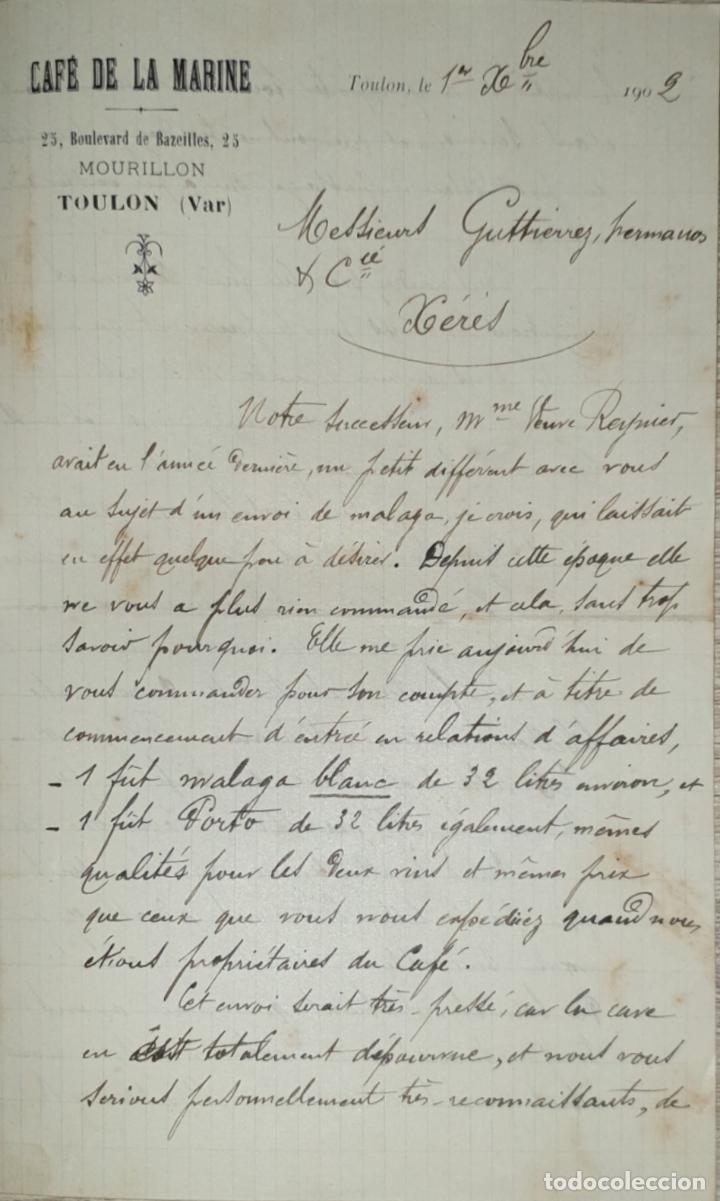 CAFÉ DE LA MARINE
25, Boulevard de Bazeilles, 25
MOURILLON
TOULON (Var)
Toulon, le 1er Xbre 1902
Messieurs Guttierrez, hermanos
& Cie
Xérès
Notre successeur, Mme Veuve Reynier,
avait eu l'année dernière, un petit différent avec vous
au sujet d'un envoi de malaga, je crois, qui laissait
en effet quelque peu à désirer. Depuis cette époque elle
ne vous a plus rien commandé, et cela, sans trop
savoir pourquoi. Elle me prie aujourd'hui de
vous commander pour son compte, et à titre de
commencement d'entrée en relations d'affaires,
- 1 fût malaga blanc de 32 litres environ, et
- 1 fût Porto de 32 litres également, mêmes
qualités pour les deux vins et mêmes prix
que ceux que vous nous expédiiez quand nous
étions propriétaires du Café.
Cet envoi serait très-pressé, car la cave
en est totalement dépourvue, et nous vous
serions personnellement très-reconnaissants, de
todocoleccion